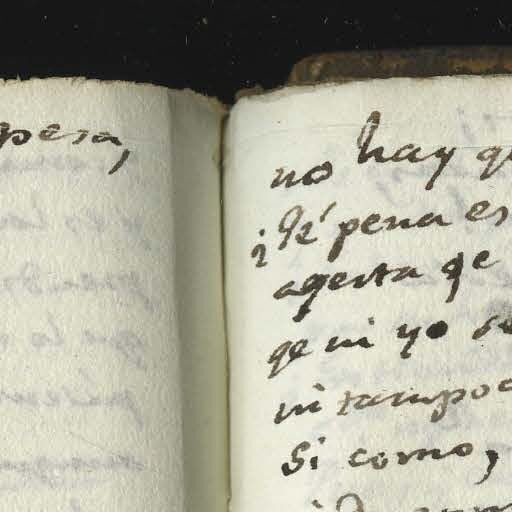 pesa,
no hay q
¿Qé pena es
aqesta qe
qe ni yo
ni tampoc
Si como,